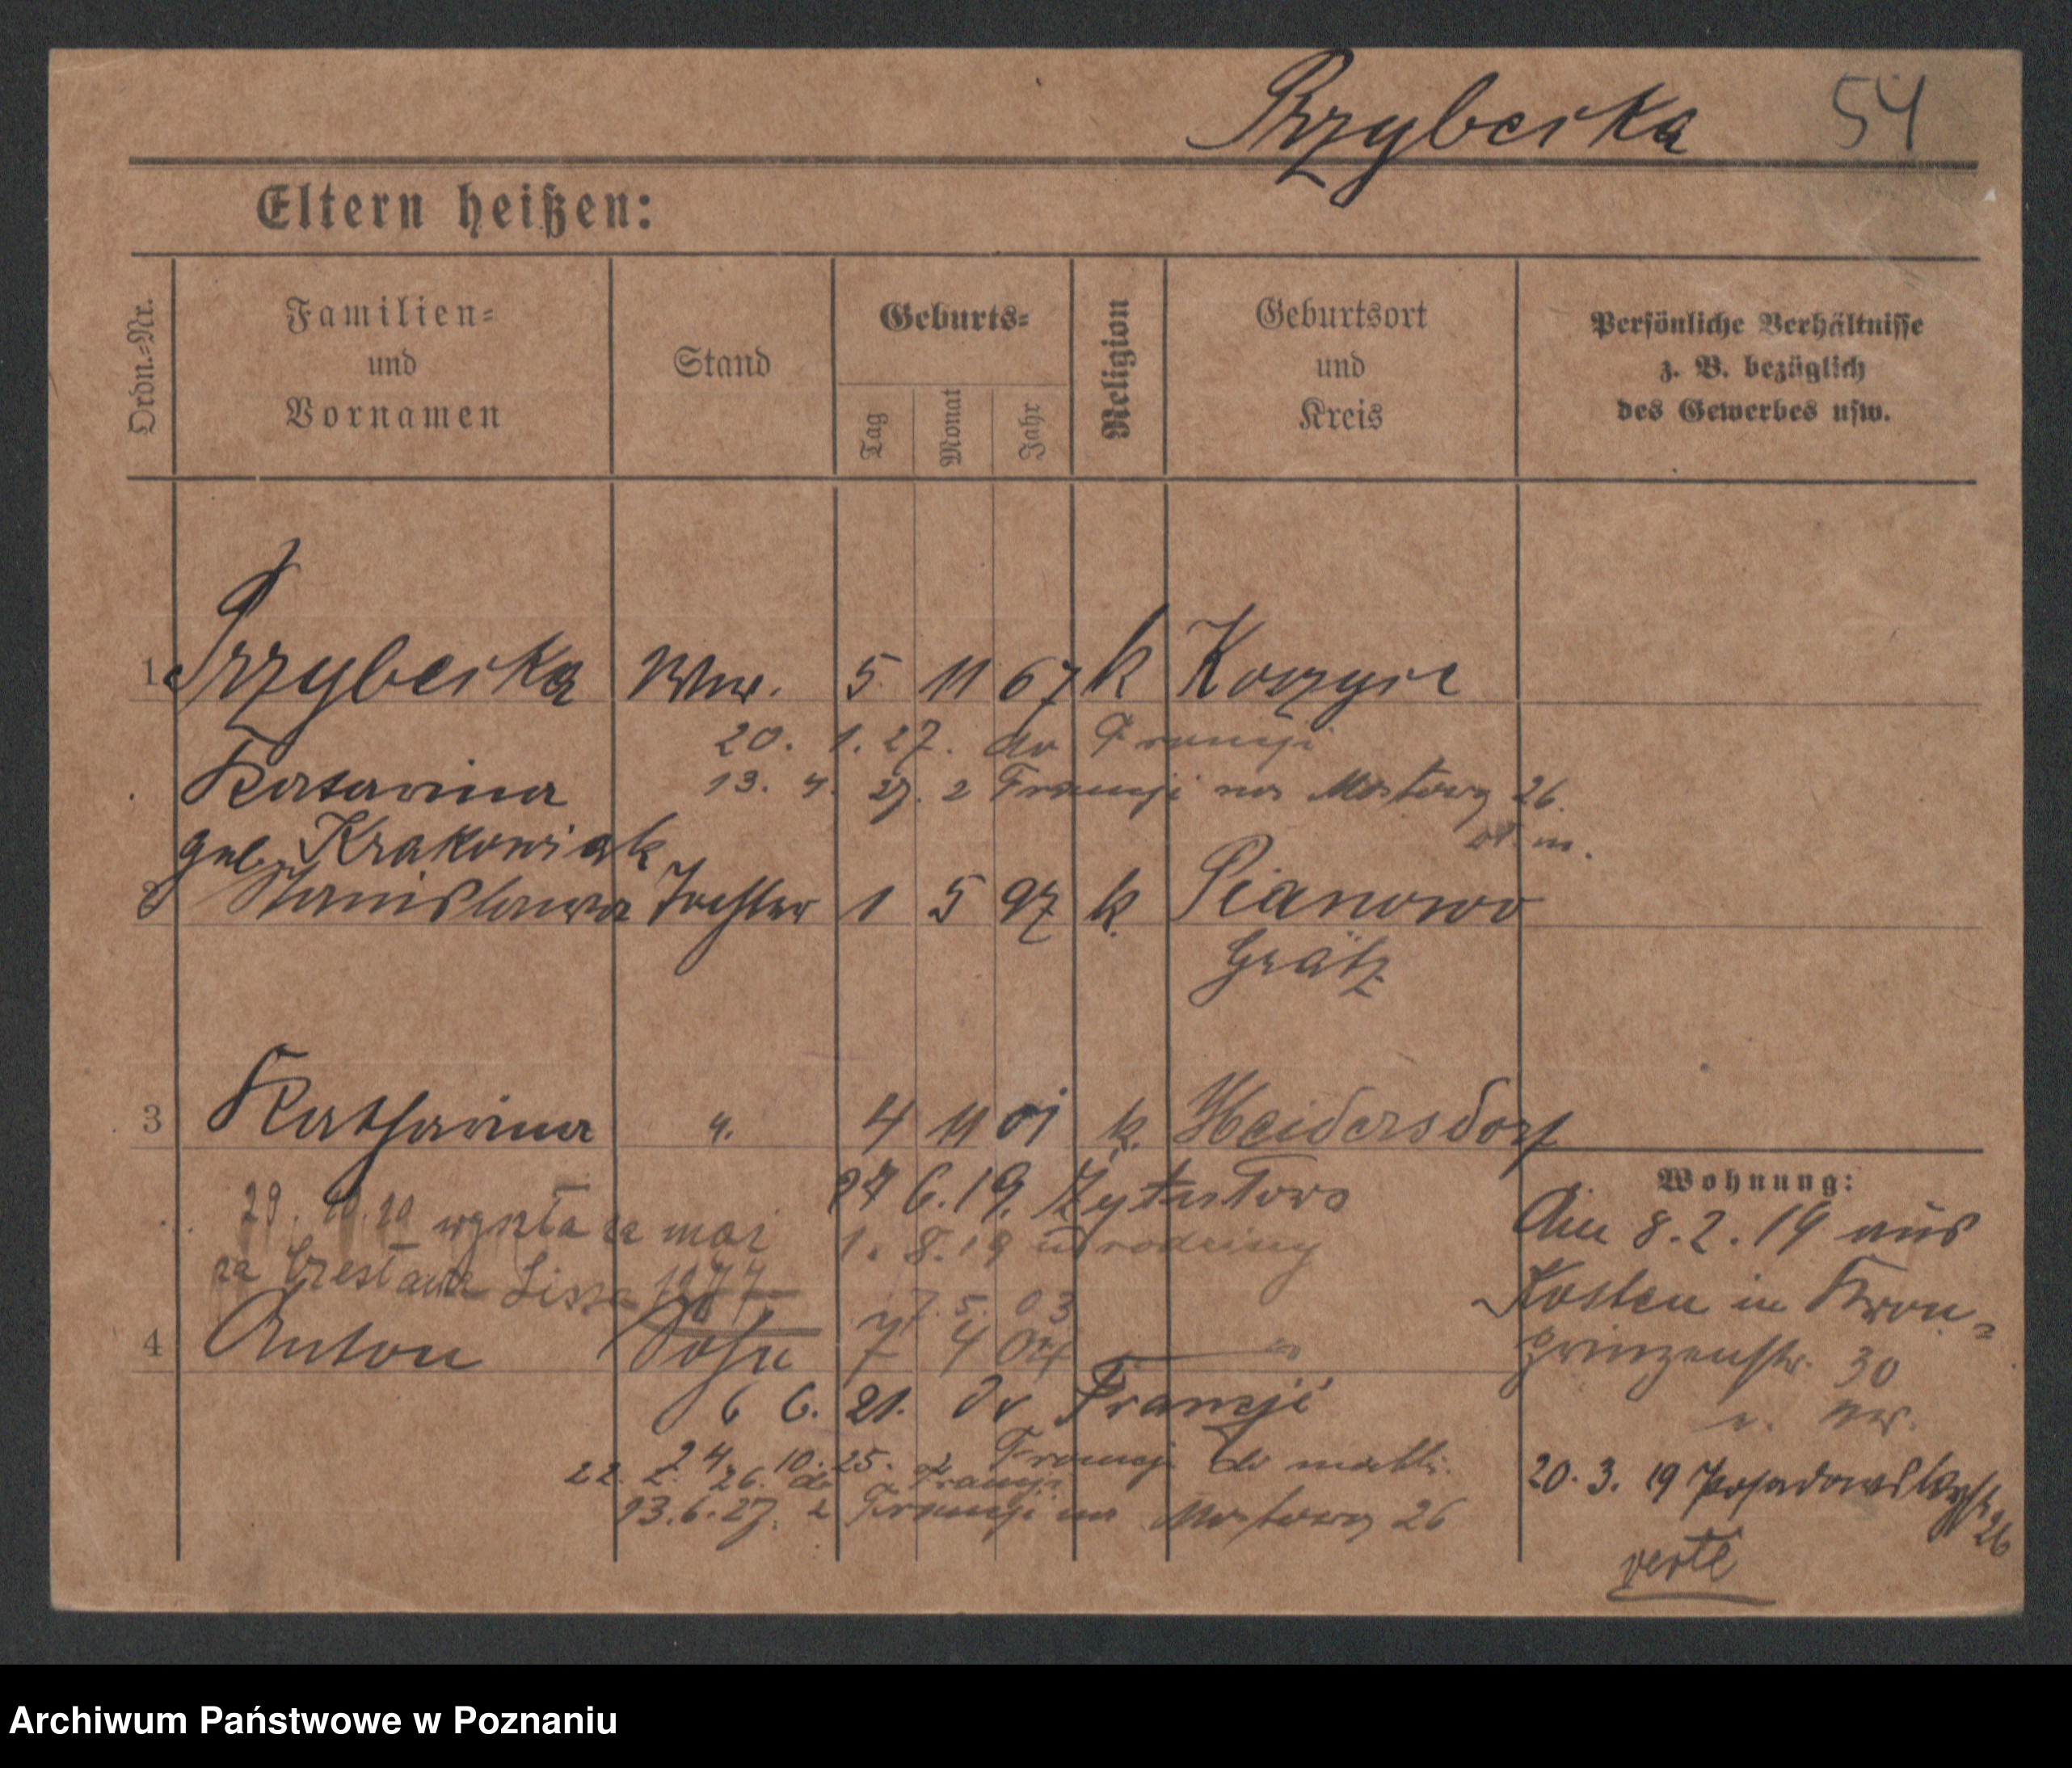 Przybeska 54
Eltern heißen:
Ordn.-Nr.
Familien-
und
Vornamen
Stand
Geburts-
Tag
Monat
Jahr
Religion
Geburtsort
und
Kreis
Persönliche Verhältnisse
z. B. bezüglich
des Gewerbes usw.
1 Przybeska Wwe. 5 11 67 k
20. 1. 27. do Francji
Katarina 13. 4. 27. z Francji na Mostową 26.
geb. Krakowiak
2 Stanislawa Tochter 1 5 97 k. Pianowo
Grätz
3 Katharina ". 4 11 01 k. Heidersdorf
6.19.
29. 10. 20 wyszła za mąż
1. 8. 19 u rodziny
za Czesława
7. 5. 03
4 Anton Sohn 7 4 04 "
6 6. 21. do Francji
24. 10. 25. z Francji do matki.
22. 2. 26. do Francji
13. 6. 27. z Francji na Mostową 26
Wohnung:
Am 8. 2. 19 aus
Kosten in Kron-
prinzenstr. 30
20. 3. 19 Posadowskystr.
26
verte
Archiwum Państwowe w Poznaniu